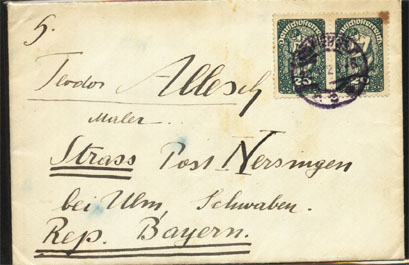 H.
Teodor Allesch
Maler
Strass Post Nersingen
bei Ulm, Schwaben.
Rep. Bayern.
Deutschösterreich Deutschösterreich